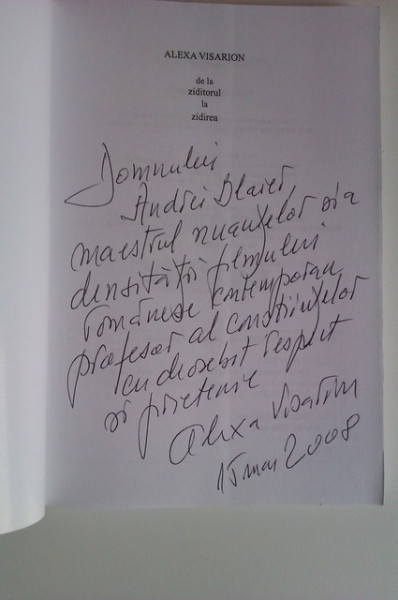 ALEXA VISARION
de la
ziditorul
la
zidirea
Domnului
Andrei Blaier,
maestrul nuanțelor și a
densității filmului
românesc contemporan
profesor al conștiințelor
cu deosebit respect
și prietenie
Alexa Visarion
15 mai 2008